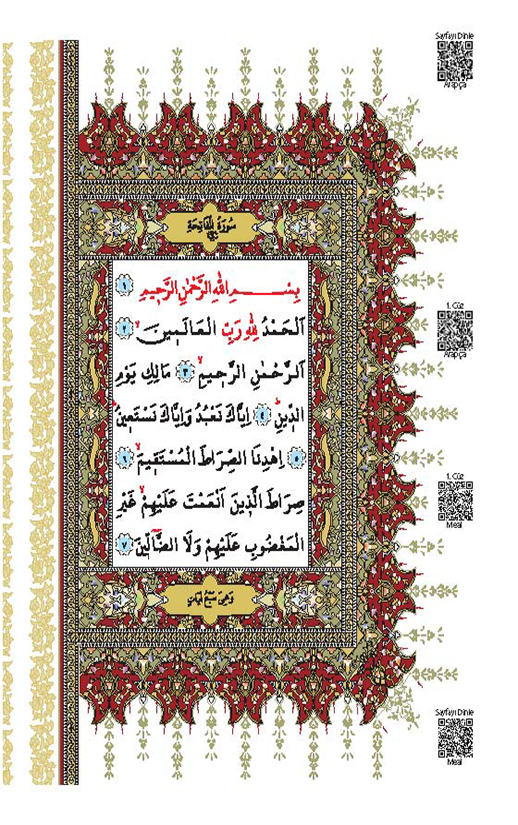 Sayfayı Dinle
Arapça
سُورَةُ الْفَاتِحَةِ
بِسْمِ اللّٰهِ الرَّحْمٰنِ الرَّحٖيمِ ﴿١﴾
اَلْحَمْدُ لِلّٰهِ رَبِّ الْعَالَمٖينَۙ ﴿٢﴾
اَلرَّحْمٰنِ الرَّحٖيمِۙ ﴿٣﴾ مَالِكِ يَوْمِ
الدّٖينِؕ ﴿٤﴾ اِيَّاكَ نَعْبُدُ وَاِيَّاكَ نَسْتَعٖينُؕ
﴿٥﴾ اِهْدِنَا الصِّرَاطَ الْمُسْتَقٖيمَۙ ﴿٦﴾
صِرَاطَ الَّذٖينَ اَنْعَمْتَ عَلَيْهِمْۙ غَيْرِ
الْمَغْضُوبِ عَلَيْهِمْ وَلَا الضَّٓالّٖينَ ﴿٧﴾
وَهِيَ سَبْعُ اٰيَاتٍ
1. Cüz
Arapça
1. Cüz
Meal
Sayfayı Dinle
Meal